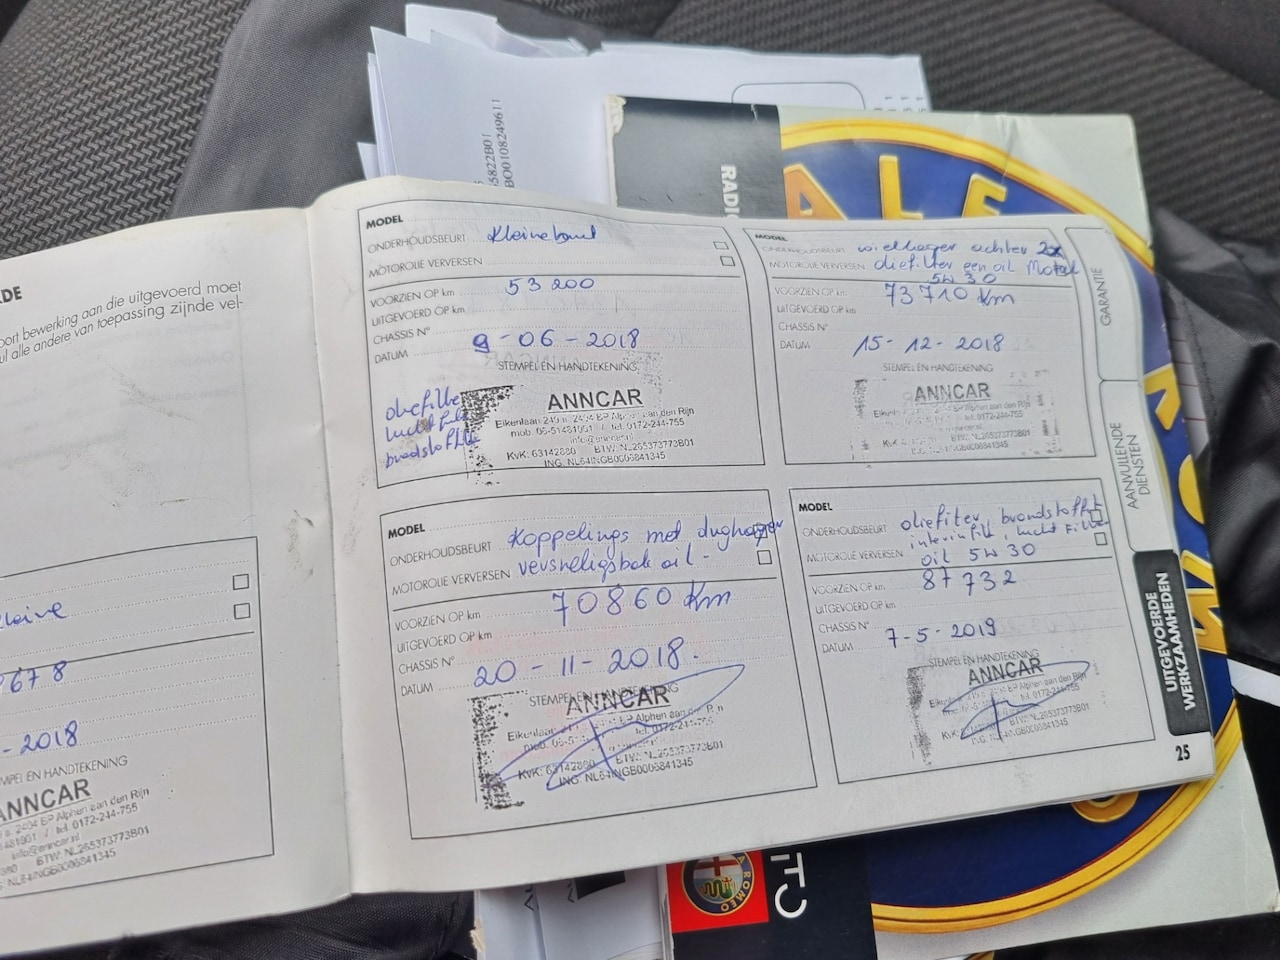 RDE
oort bewerking aan die uitgevoerd moet
ul alle andere van toepassing zijnde vel-
678
-2018
STEMPEL EN HANDTEKENING
ANNCAR
2404 EP Alphen aan den Rijn
tel. 0172-244-755
BTW: NL265373773B01
MODEL
ONDERHOUDSBEURT Kleinebeurt
MOTOROLIE VERVERSEN
VOORZIEN OP km 53200
UITGEVOERD OP km
CHASSIS N°
DATUM 9-06-2018
STEMPEL EN HANDTEKENING
oliefilte
brandstoffilt
ANNCAR
Eikenlaan 2404 EP Alphen aan den Rijn
mob. 06-51481961 / tel. 0172-244-755
info@anncar.nl
KvK: 63142880 BTW: NL265373773B01
MODEL
ONDERHOUDSBEURT wiellager achter 2x
MOTOROLIE VERVERSEN oliefilter een oil Motul
5W30
VOORZIEN OP km 73710 Km
UITGEVOERD OP km
CHASSIS N°
DATUM 15-12-2018
STEMPEL EN HANDTEKENING
ANNCAR
EP Alphen aan den Rijn
tel. 0172-244-755
BTW: NL265373773B01
MODEL
ONDERHOUDSBEURT Koppelings met druklager
MOTOROLIE VERVERSEN versnelligsbak oil-
VOORZIEN OP km 70860 Km
UITGEVOERD OP km
CHASSIS N°
DATUM 20-11-2018.
STEMPEL EN HANDTEKENING
ANNCAR
Eikenlaan EP Alphen aan
tel. 0172-244-755
KvK: 63142880 BTW: NL265373773B01
MODEL
ONDERHOUDSBEURT oliefilter, brandstoffilt
MOTOROLIE VERVERSEN oil 5W30
VOORZIEN OP km 87732
UITGEVOERD OP km
CHASSIS N°
DATUM 7-5-2019
STEMPEL EN HANDTEKENING
ANNCAR
EP Alphen aan den Rijn
tel. 0172-244-755
BTW: NL265373773B01
GARANTIE
AANVULLENDE
DIENSTEN
UITGEVOERDE
WERKZAAMHEDEN
25
65822B01
BO0108249611
RADIO
ALF
ROMEO